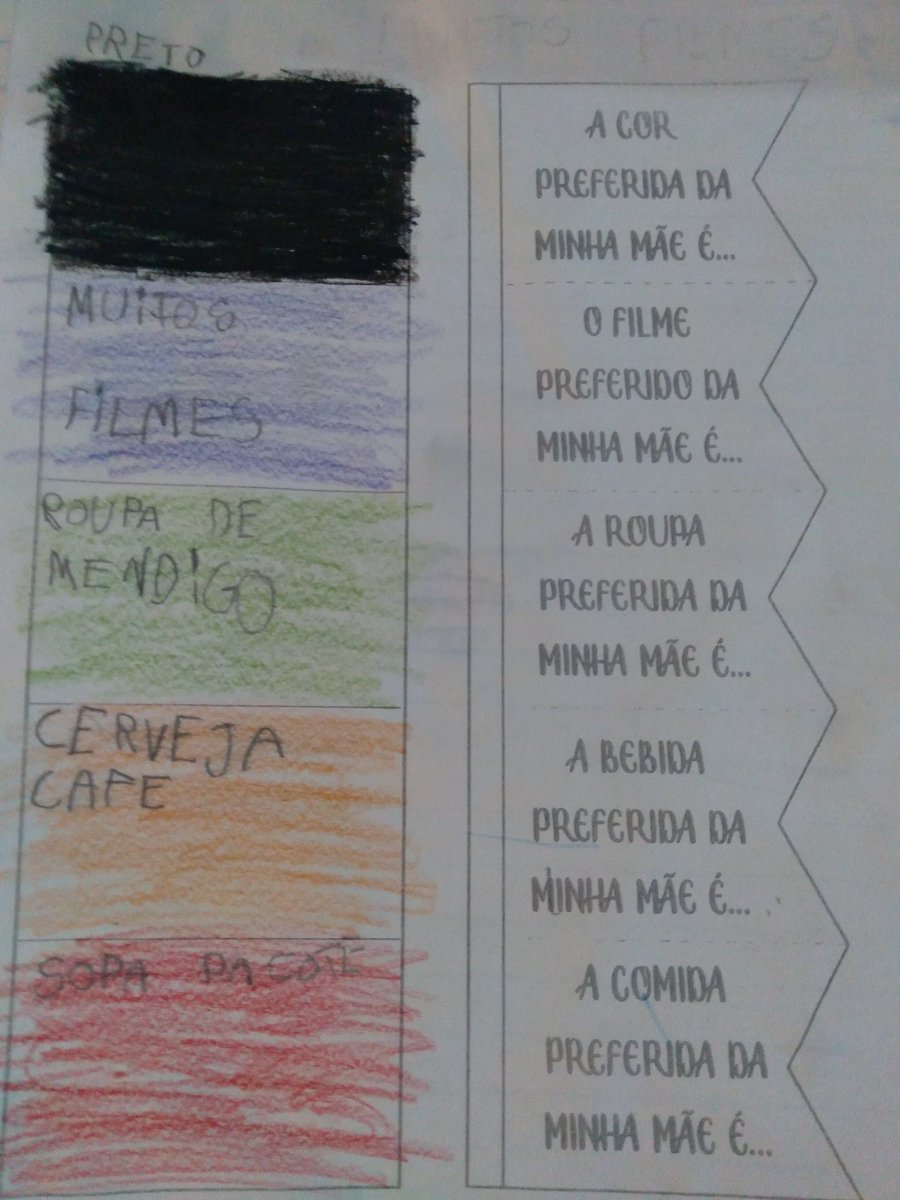 PRETO
MUITOS
FILMES
ROUPA DE
MENDIGO
CERVEJA
CAFE
SOPA PACOTE
A COR
PREFERIDA DA
MINHA MÃE É...
O FILME
PREFERIDO DA
MINHA MÃE É...
A ROUPA
PREFERIDA DA
MINHA MÃE É...
A BEBIDA
PREFERIDA DA
MINHA MÃE É...
A COMIDA
PREFERIDA DA
MINHA MÃE É...